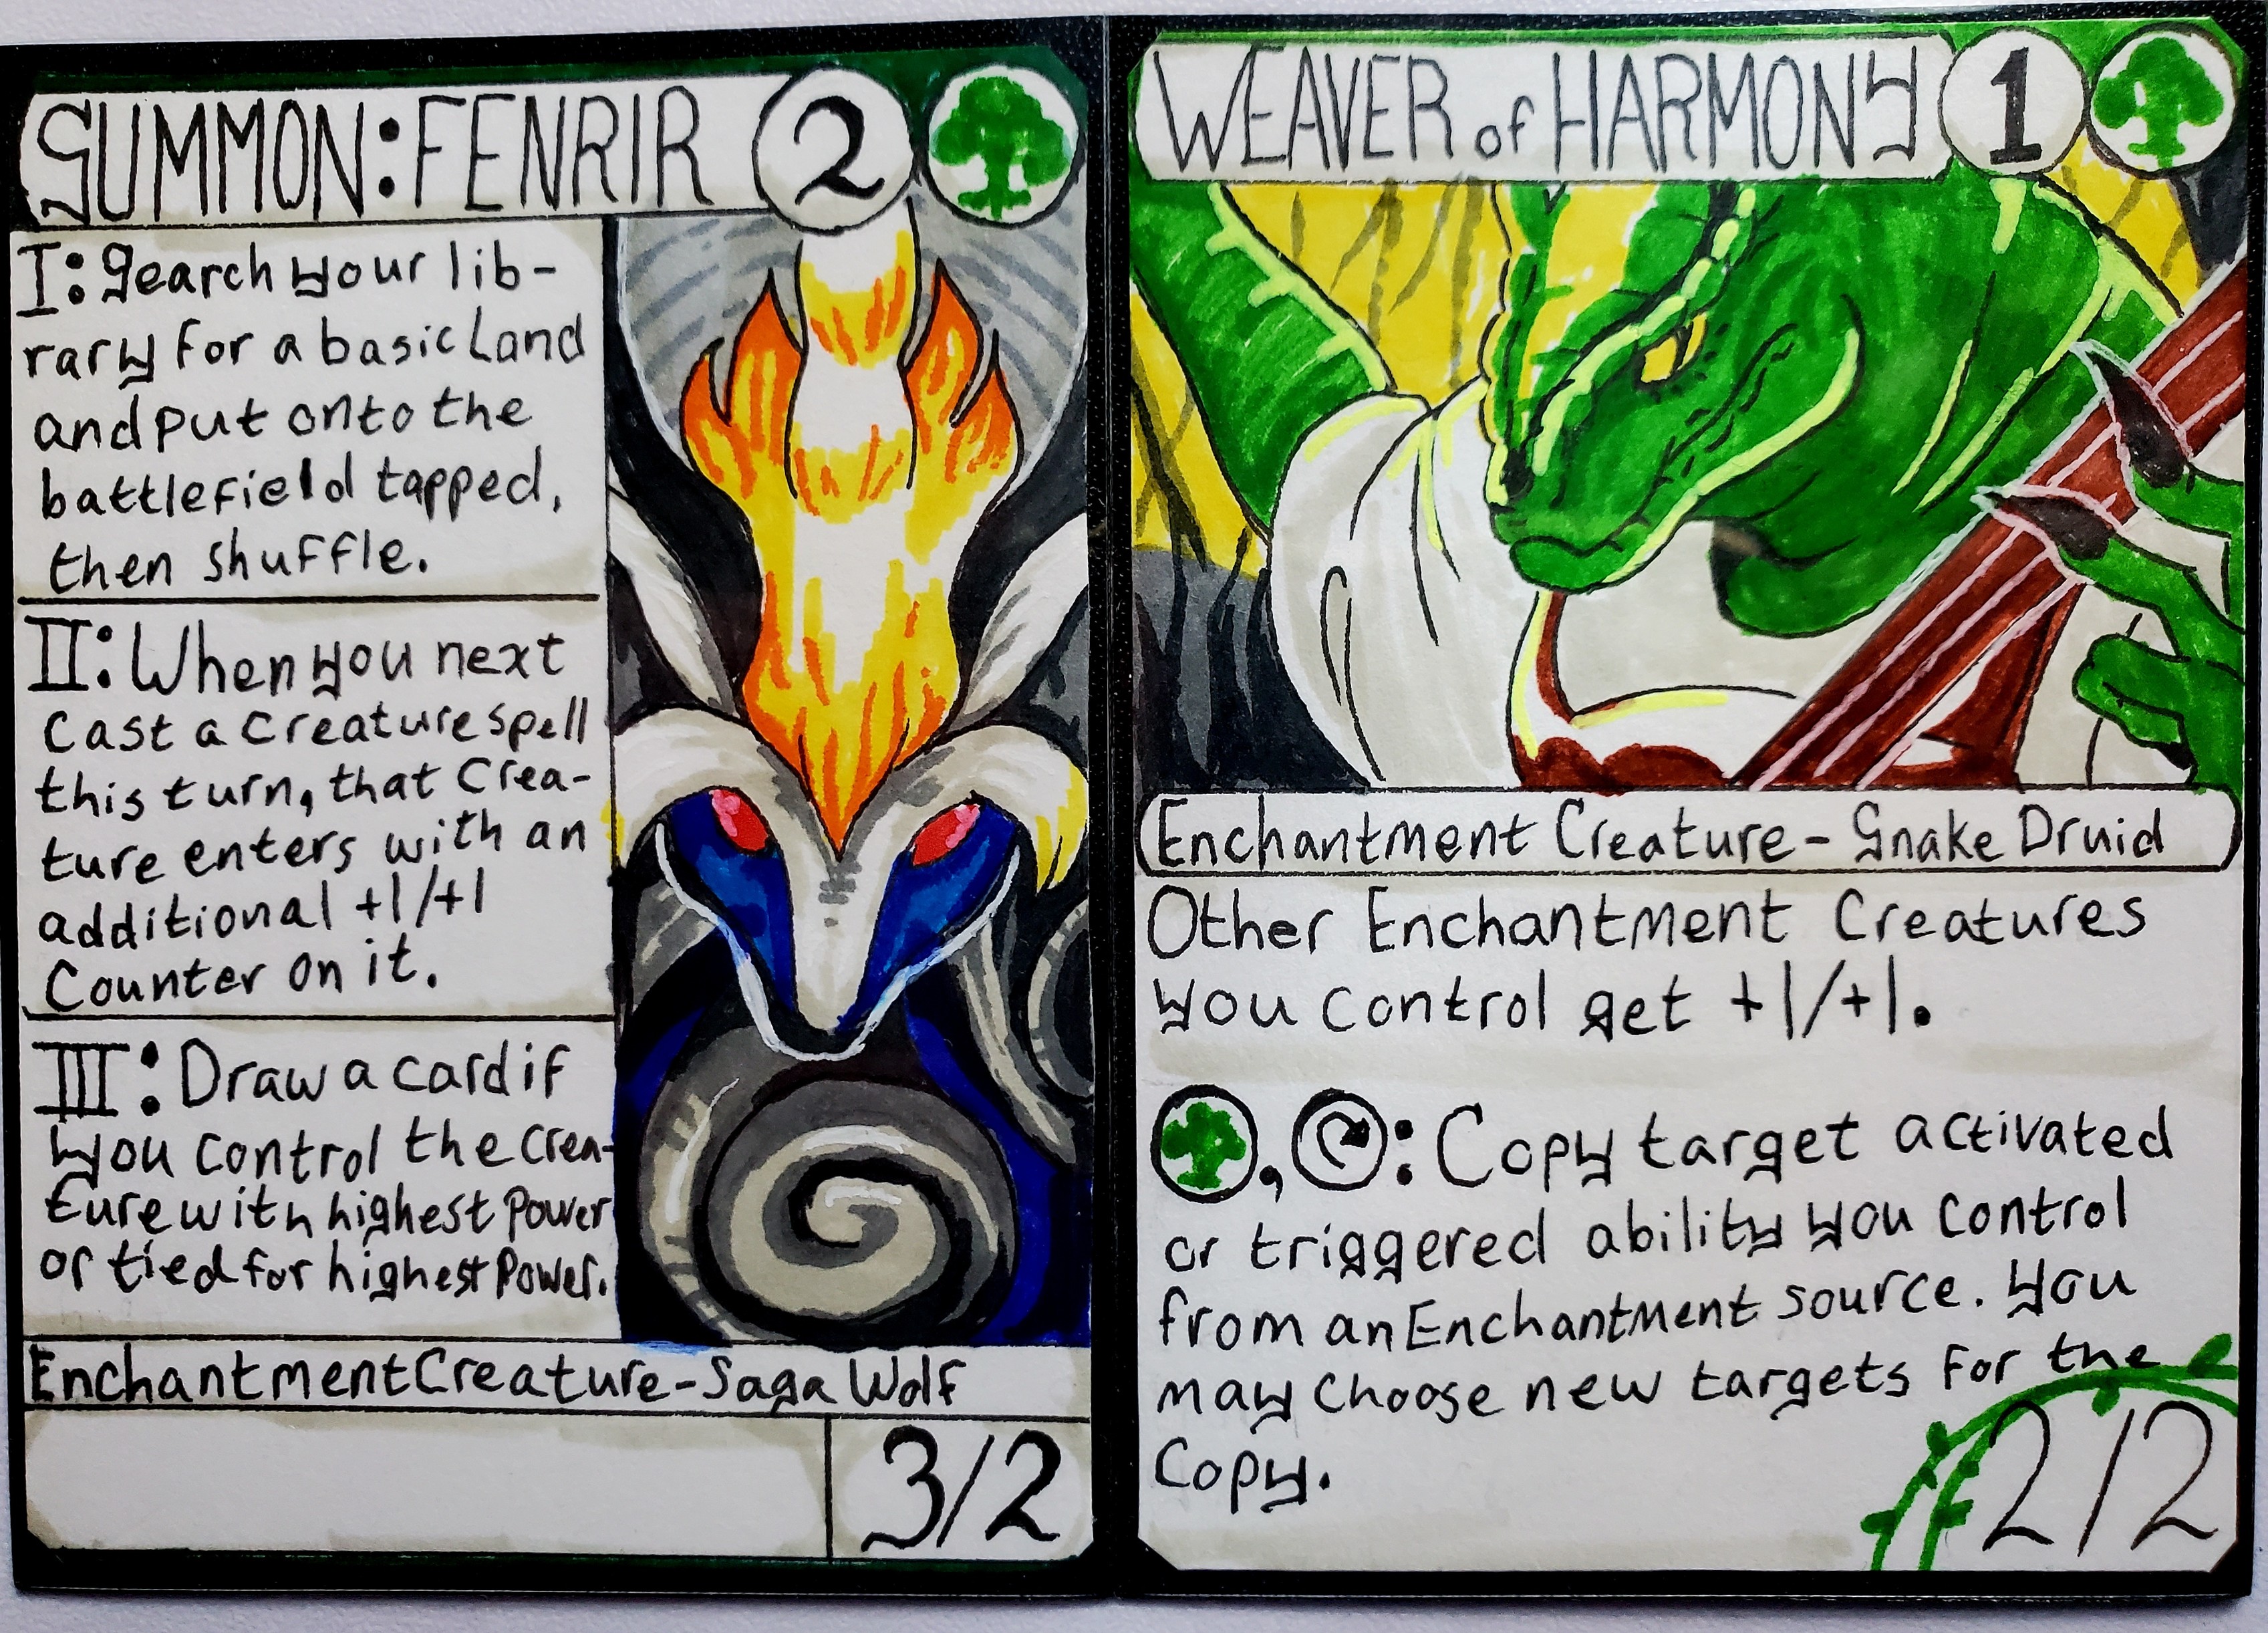 SUMMON: FENRIR 2
I: Search your lib-
rary for a basic Land
and put onto the
battlefield tapped,
then shuffle.
II: When you next
Cast a Creature spell
this turn, that Crea-
ture enters with an
additional +1/+1
Counter on it.
III: Draw a card if
you control the Crea-
ture with highest Power
or tied for highest Power.
Enchantment Creature - Saga Wolf
3/2
WEAVER of HARMONY 1
Enchantment Creature - Snake Druid
Other Enchantment Creatures
you control get +1/+1.
, : Copy target activated
or triggered ability you control
from an Enchantment source. You
may Choose new targets for the
Copy.
2/2